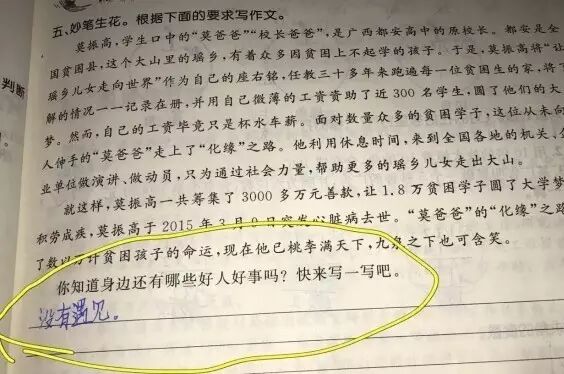 五、妙笔生花。根据下面的要求写作文。
莫振高,学生口中的“莫爸爸”“校长爸爸”,是广西都安高中的原校长。都安是全
国贫困县,这个大山里的瑶乡,有着众多因贫困上不起学的孩子。于是,莫振高将“让
瑶乡儿女走向世界”作为自己的座右铭,任教三十多年来跑遍每一位贫困生的家,将了
解的情况一一记录在册,并用自己微薄的工资资助了近300名学生,圆了他们的大
梦。然而,自己的工资毕竟只是杯水车薪。面对数量众多的贫困学子,这位从未向
人伸手的“莫爸爸”走上了“化缘”之路。他利用休息时间,来到全国各地的机关、
业单位做演讲、做动员,只为通过社会力量,帮助更多的瑶乡儿女走出大山。
就这样,莫振高一共筹集了3000多万元善款,让1.8万贫困学子圆了大学梦
积劳成疾,莫振高于2015年3月9日突发心脏病去世。“莫爸爸”的“化缘”之路
了数以万计贫困孩子的命运,现在他已桃李满天下,九泉之下也可含笑。
你知道身边还有哪些好人好事吗?快来写一写吧。
没有遇见。
判断